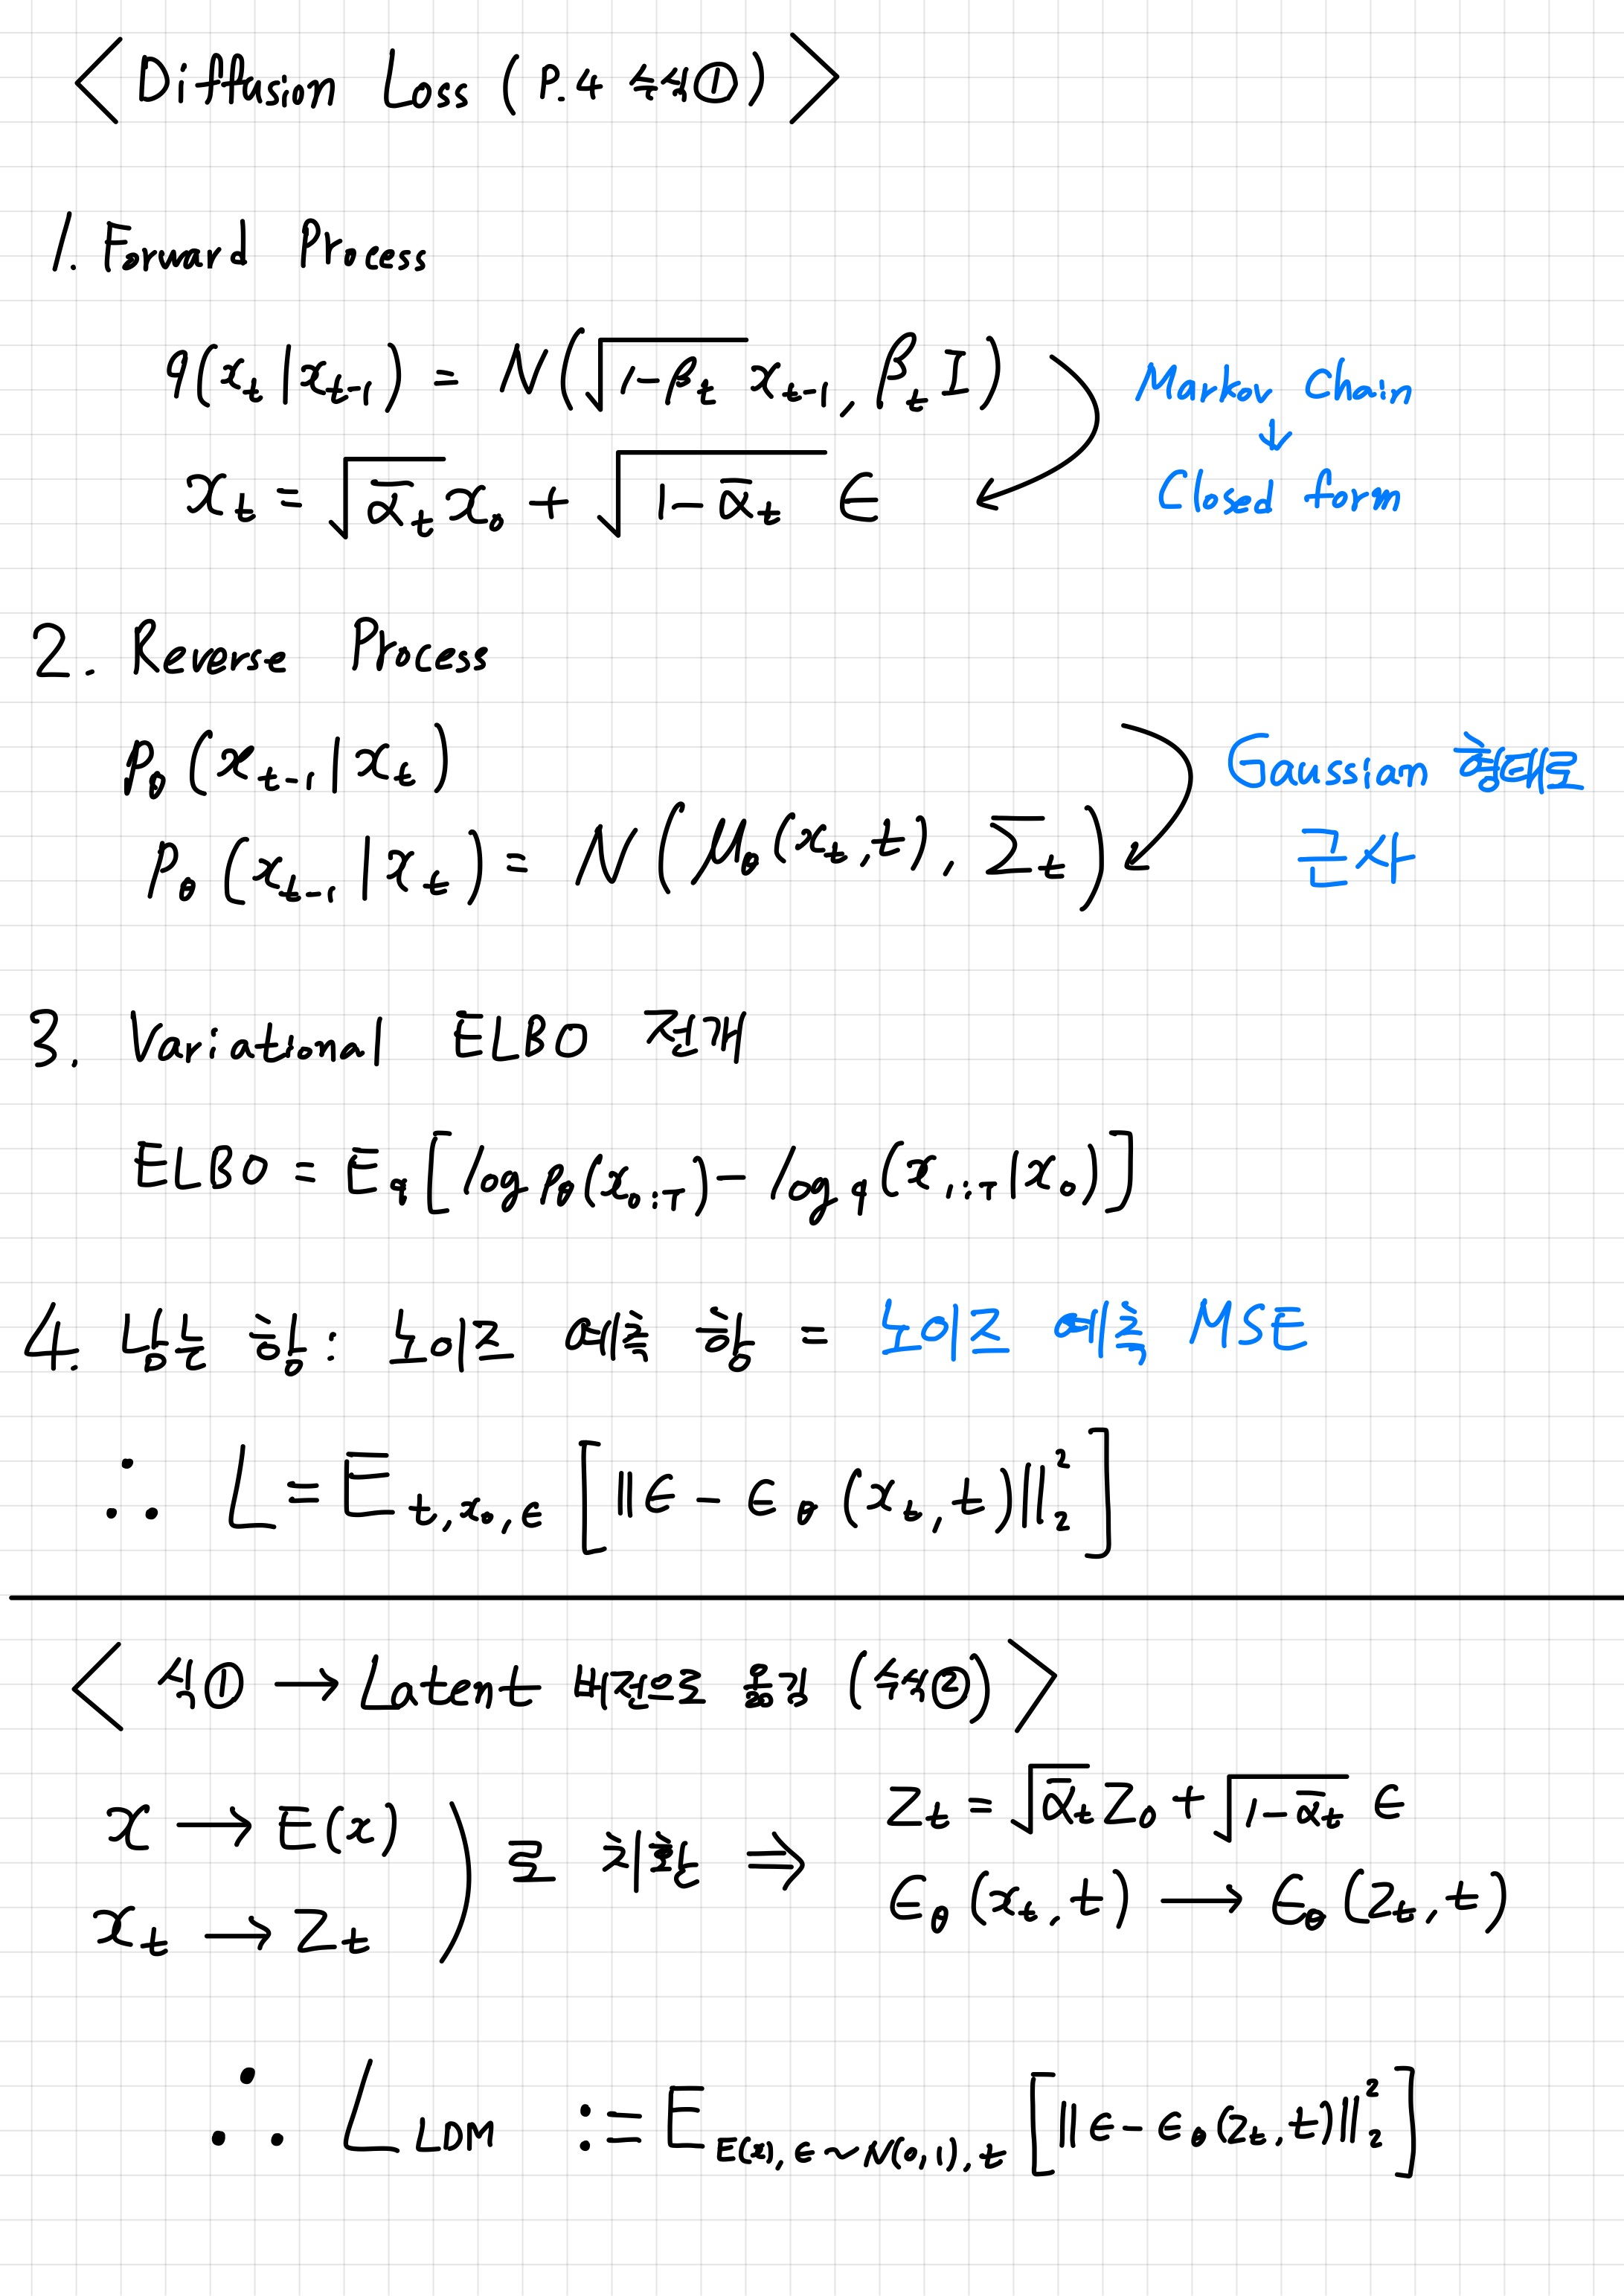 < Diffusion Loss (P.4 수식①) >
1. Forward Process
q(x_t | x_{t-1}) = N(√(1-β_t) x_{t-1}, β_t I)
Markov Chain
↓
Closed form
x_t = √(ᾱ_t) x_0 + √(1-ᾱ_t) ϵ
2. Reverse Process
P_θ (x_{t-1} | x_t)
Gaussian 형태로
근사
P_θ (x_{t-1} | x_t) = N(μ_θ(x_t, t), Σ_t)
3. Variational ELBO 전개
ELBO = E_q [log p_θ(x_{0:T}) - log q(x_{1:T} | x_0)]
4. 남는 항 : 노이즈 예측 항 = 노이즈 예측 MSE
∴ L = E_{t, x_0, ϵ} [‖ϵ - ϵ_θ (x_t, t)‖_2^2]
< 식① → Latent 버전으로 옮김 (수식②) >
x → E(x)
x_t → Z_t
) 로 치환 ⇒
Z_t = √(ᾱ_t) Z_0 + √(1-ᾱ_t) ϵ
ϵ_θ (x_t, t) → ϵ_θ (Z_t, t)
∴ L_{LDM} := E_{E(x), ϵ∼N(0,1), t} [‖ϵ - ϵ_θ(Z_t, t)‖_2^2]